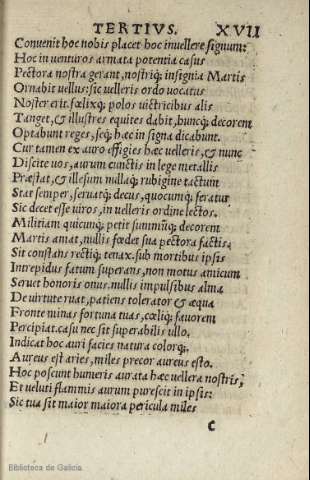 TERTIVS. XVII
Convenit hoc nobis placet hoc in vellere signum:
Hoc in venturos armata potentia casus
Pectora nostra gerant, nostriq; insignia Martis
Ornabit vellus: sic velleris ordo vocatus
Noster erit. fœlixq; polos victricibus alis
Tanget, & illustres equites dabit, huncq; decorem
Optabunt reges, seq; hæc in signa dicabunt.
Cur tamen ex auro effigies hæc velleris, & nunc
Discite vos, aurum cunctis in lege metallis
Præstat, & illesum nullaq; rubigine tactum
Stat semper, servatq; decus, quocumq; feratur
Sic decet esse viros, in velleris ordine lectos.
Militiam quicunq; petit summūq; decorem
Martis amat, nullis fœdet sua pectora factis
Sit constans rectiq; tenax. sub mortibus ipsis
Intrepidus fatum superans, non motus amicum
Servet honoris onus. nullis impulsibus alma
De virtute ruat, patiens tolerator & æqua
Fronte minas fortuna tuas, cœliq; favorem
Percipiat. casu nec sit superabilis ullo.
Indicat hoc auri facies natura colorq;.
Aureus est aries, miles precor aureus esto.
Hoc poscunt humeris aurata hæc vellera nostris,
Et veluti flammis aurum purescit in ipsis:
Sic tua sit maior maiora pericula miles
c
Biblioteca de Galicia